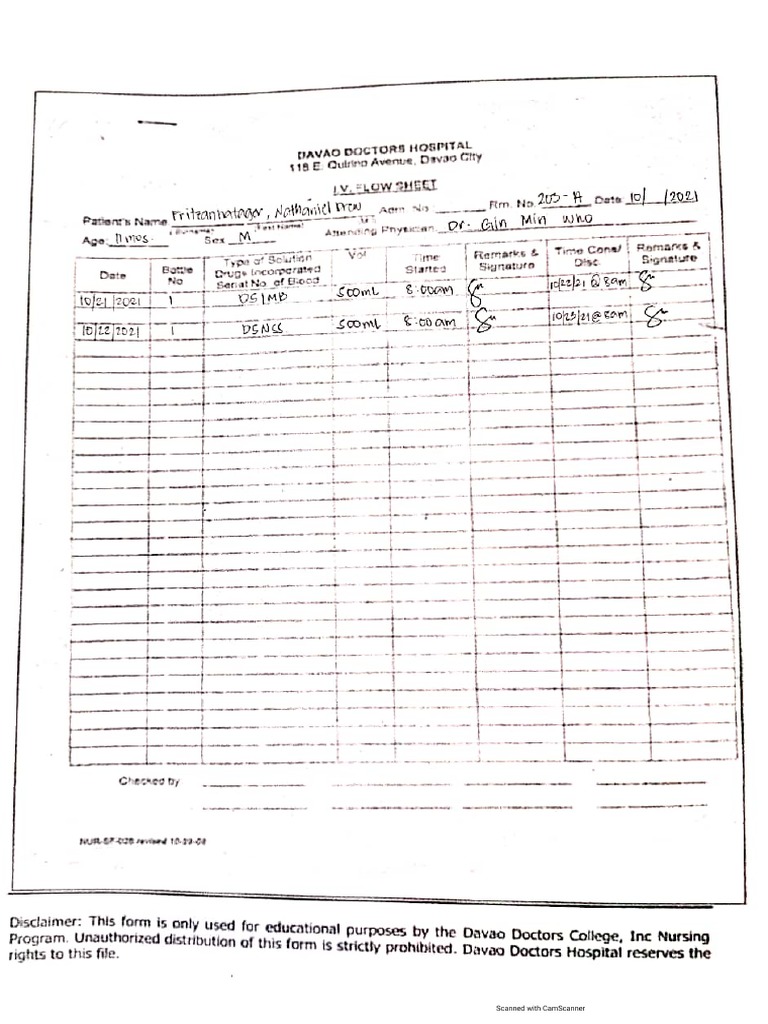 DAVAO DOCTORS HOSPITAL
118 E. Quirino Avenue, Davao City
I.V. FLOW SHEET
Patient's Name Nathaniel Drew Adm. No. Rm. No. 203-A Date 10/ /2021
(Surname) (First Name) M.I
Age: 11mos. Sex M Attending Physician: Dr. Gin Min Who
Date Bottle No Type of Solution Drugs Incorporated Serial No. of Blood Vol Time Started Remarks & Signature Time Cons/ Disc. Remarks & Signature
10/21/2021 1 D5IMB 500mL 8:00am 10/22/21 @ 8am
10/22/2021 1 D5NSS 500mL 8:00am 10/23/21 @ 8am
Checked by
revised
Disclaimer: This form is only used for educational purposes by the Davao Doctors College, Inc Nursing
Program. Unauthorized distribution of this form is strictly prohibited. Davao Doctors Hospital reserves the
rights to this file.
Scanned with CamScanner